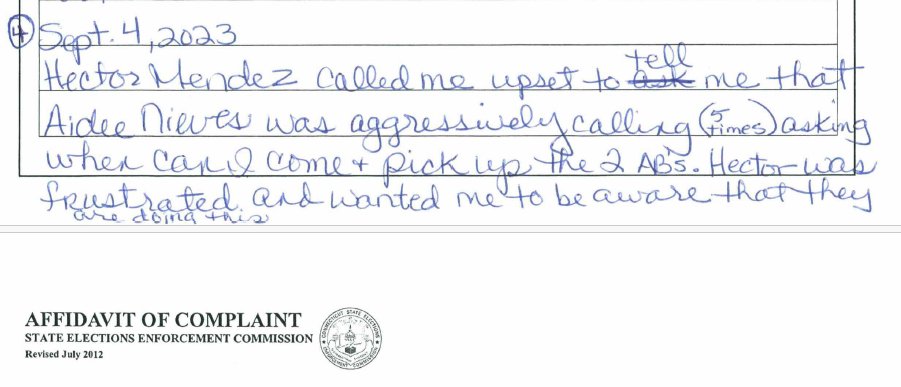 4 Sept. 4, 2023
Hector Mendez called me upset to ask tell me that
Aidee Nieves was aggressively calling (5 times) asking
when can I come + pick up the 2 AB's. Hector was
frustrated and wanted me to be aware that they
are doing this
AFFIDAVIT OF COMPLAINT
STATE ELECTIONS ENFORCEMENT COMMISSION
Revised July 2012
CONNECTICUT STATE ELECTIONS
ENFORCEMENT COMMISSION